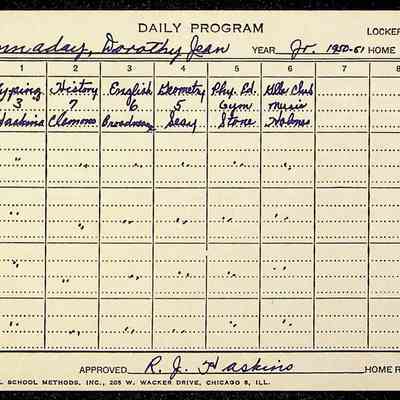 DAILY PROGRAM
LOCKER
Dorothy Jean YEAR Jr. 1950-51 HOME
1 2 3 4 5 6 7
Typing History English Geometry Phy. Ed. Glee Club
3 7 6 5 Gym music
Haskins Clemons Seay Stone Holmes
" " " " " "
" " " " " "
" " " " " "
" " " " " "
APPROVED R. J. Haskins HOME R
L SCHOOL METHODS, INC., 205 W. WACKER DRIVE, CHICAGO 6, ILL.